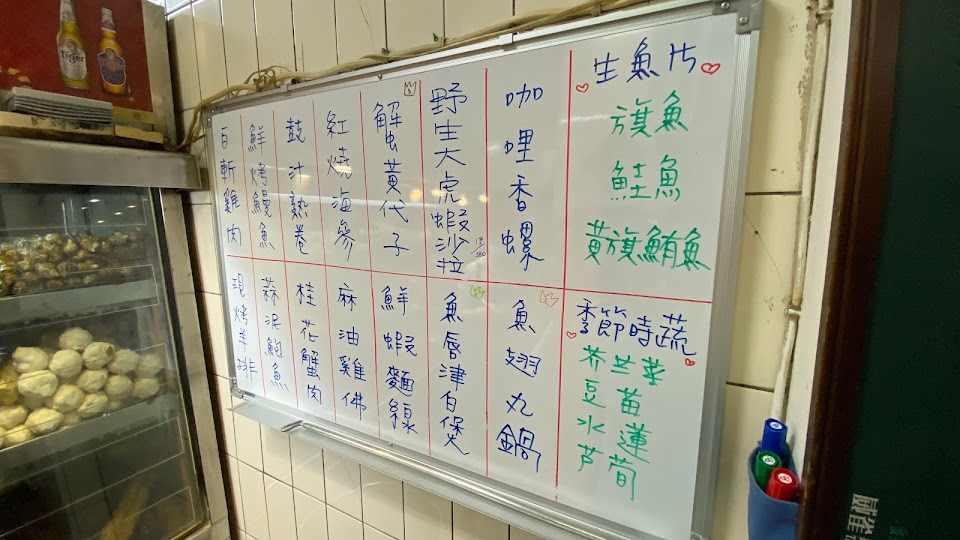 生魚片
旗魚
鮭魚
黃旗鮪魚
咖哩香螺
野生大虎蝦沙拉
380
蟹黃代子
紅燒海參
鼓汁熟卷
鮮烤鰻魚
白斬雞肉
季節時蔬
芥兰菜
豆苗
水蓮
芦荀
魚翅丸鍋
魚唇津白煲
鮮蝦麵線
麻油雞佛
桂花蟹肉
蒜泥鮑魚
現烤羊排
Tiger